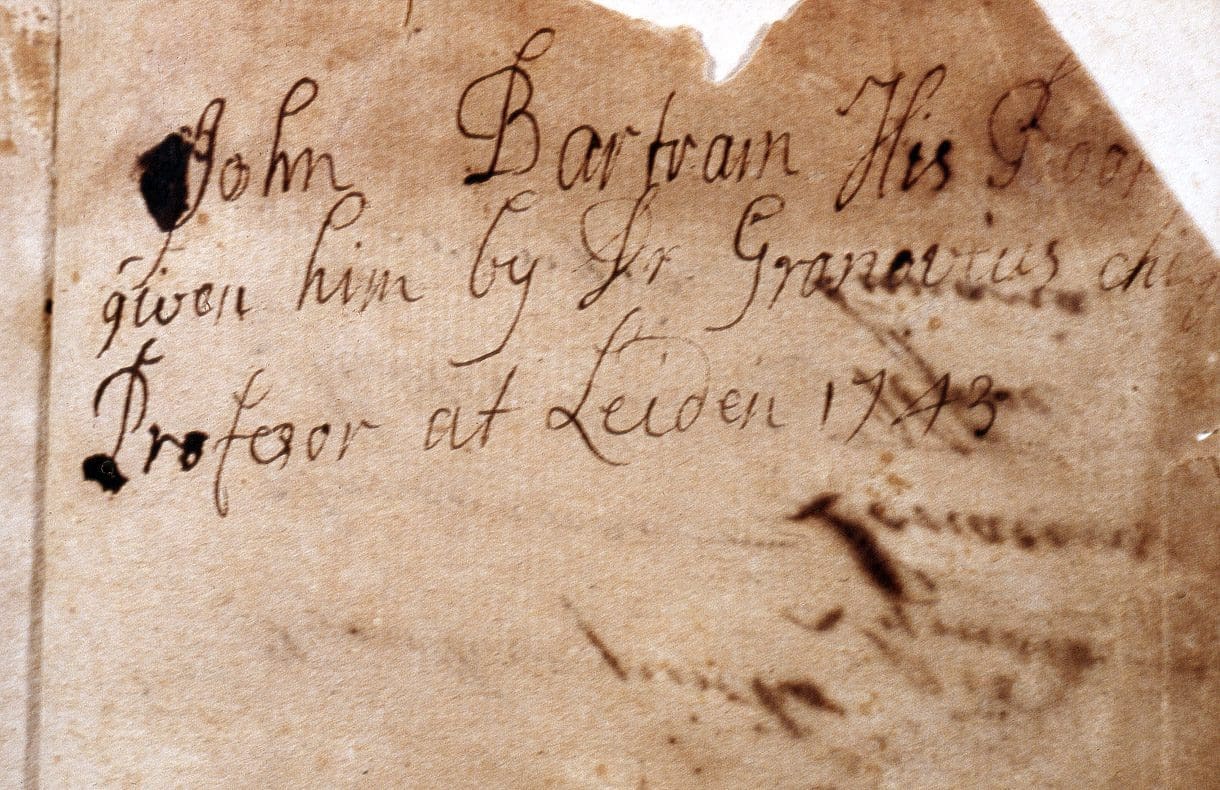 John Bartram His Book
given him by Dr Granovius chi
Profesor at Leiden 1743